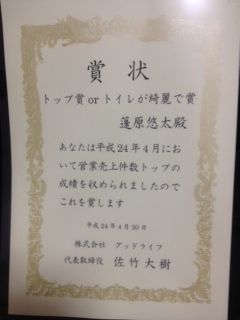 賞状
トップ賞 or トイレが綺麗で賞
蓬原悠太殿
あなたは平成24年4月にお
いて営業売上件数トップの
成績を収められましたので
これを賞します
平成24年4月30日
株式会社 グッドライフ
代表取締役 佐竹大樹